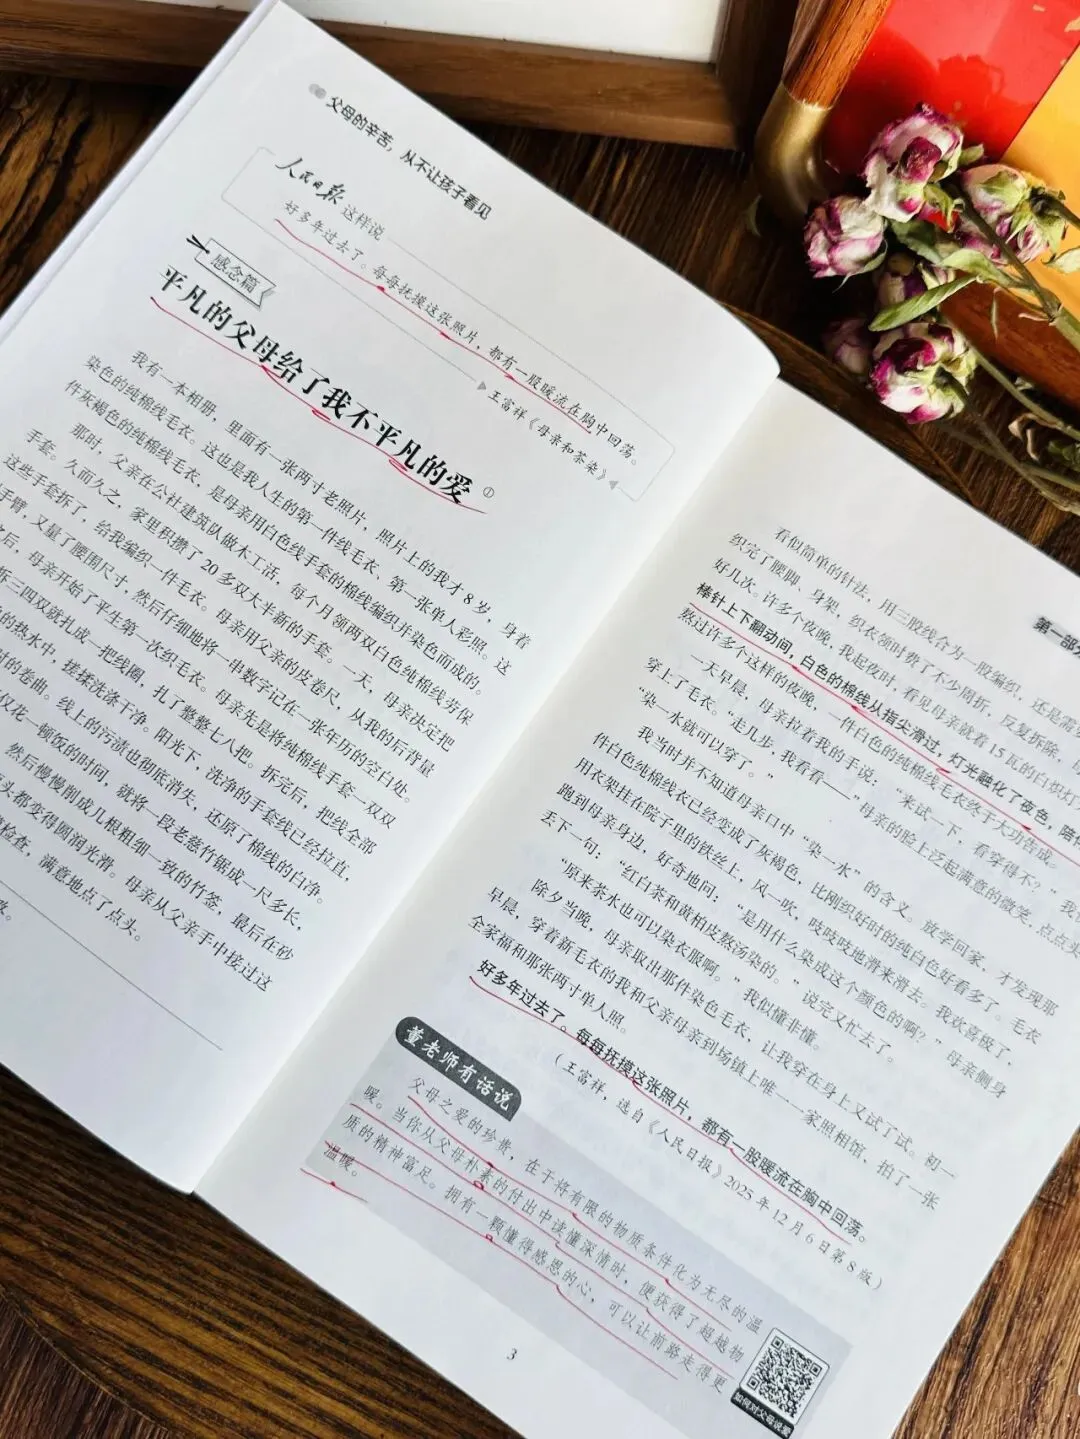 父母的辛苦，从不让孩子看见
人民日报 这样说
好多年过去了。每每抚摸这张照片，都有一股暖流在胸中回荡。
王富祥《母亲和茶染》
感念篇
平凡的父母给了我不平凡的爱 ①
我有一本相册，里面有一张两寸老照片，照片上的我才8岁，身着
染色的纯棉线毛衣。这也是我人生的第一件线毛衣、第一张单人彩照。这
件灰褐色的纯棉线毛衣，是母亲用白色线手套的棉线编织并染色而成的。
那时，父亲在公社建筑队做木工活，每个月领两双白色纯棉线劳保
手套。久而久之，家里积攒了20多双大半新的手套。一天，母亲决定把
这些手套拆了，给我编织一件毛衣。母亲用父亲的皮卷尺，从我的后背量
手臂，又量了腰围尺寸，然后仔细地将一串数字记在一张年历的空白处。
之后，母亲开始了平生第一次织毛衣。母亲先是将纯棉线手套一双双
拆三四双就扎成一把线圈，扎了整整七八把。拆完后，把线全部
的热水中，揉揉洗涤干净。阳光下，洗净的手套线已经拉直，
时的卷曲。线上的污渍也彻底消失，还原了棉线的白净。
仅花一顿饭的时间，就将一段老慈竹锯成一尺多长，
然后慢慢削成几根粗细一致的竹签，最后在砂
头都变得圆润光滑。母亲从父亲手中接过这
检查，满意地点了点头。
第一部分
看似简单的针法，用三股线合为一股编织，还是需要
织完了腰脚、身架，织衣领时费了不少周折，反复拆除，
好几次。许多个夜晚，我起夜时，看见母亲就着15瓦的白炽灯
棒针上下翻动间，白色的棉线从指尖滑过，灯光融化了夜色，陪伴
熬过许多个这样的夜晚，一件白色的纯棉线毛衣终于大功告成。
一天早晨，母亲拉着我的手说：“来试一下，看穿得不？”我
穿上了毛衣。“走几步，我看看——”母亲的脸上泛起满意的微笑，点点头
“染一水就可以穿了。”
我当时并不知道母亲口中“染一水”的含义。放学回家，才发现那
件白色纯棉线衣已经变成了灰褐色，比刚织好时的纯白色好看多了。毛衣
用衣架挂在院子里的铁丝上，风一吹，吱吱吱地滑来滑去。我欢喜极了，
跑到母亲身边，好奇地问：“是用什么染成这个颜色的啊？”母亲侧身
丢下一句：“红白茶和黄柏皮熬汤染的。”说完又忙去了。
“原来茶水也可以染衣服啊。”我似懂非懂。
除夕当晚，母亲取出那件染色毛衣，让我穿在身上又试了试。初一
早晨，穿着新毛衣的我和父亲母亲到场镇上唯一一家照相馆，拍了一张
全家福和那张两寸单人照。
好多年过去了。每每抚摸这张照片，都有一股暖流在胸中回荡。
（王富祥，选自《人民日报》2025年12月6日第8版）
董老师有话说
父母之爱的珍贵，在于将有限的物质条件化为无尽的温
暖。当你从父母朴素的付出中读懂深情时，便获得了超越物
质的精神富足。拥有一颗懂得感恩的心，可以让前路走得更
温暖。
如何对父母说爱
3